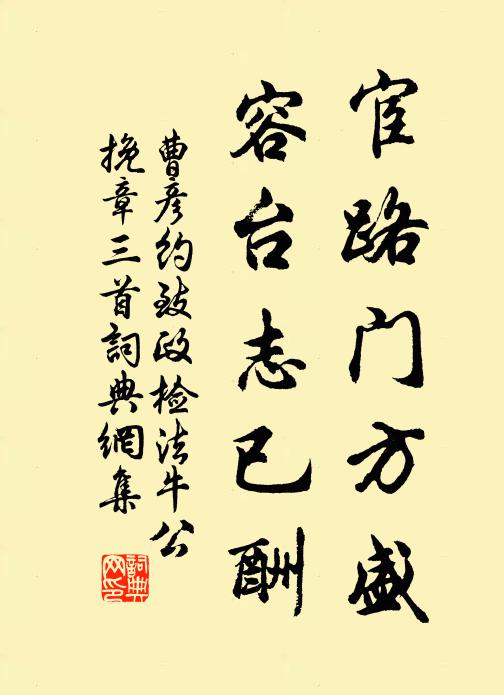 宦路门方盛
容台志已酬
曹彦约致政检法牛公
挽章三首詞典網集
詞典网印